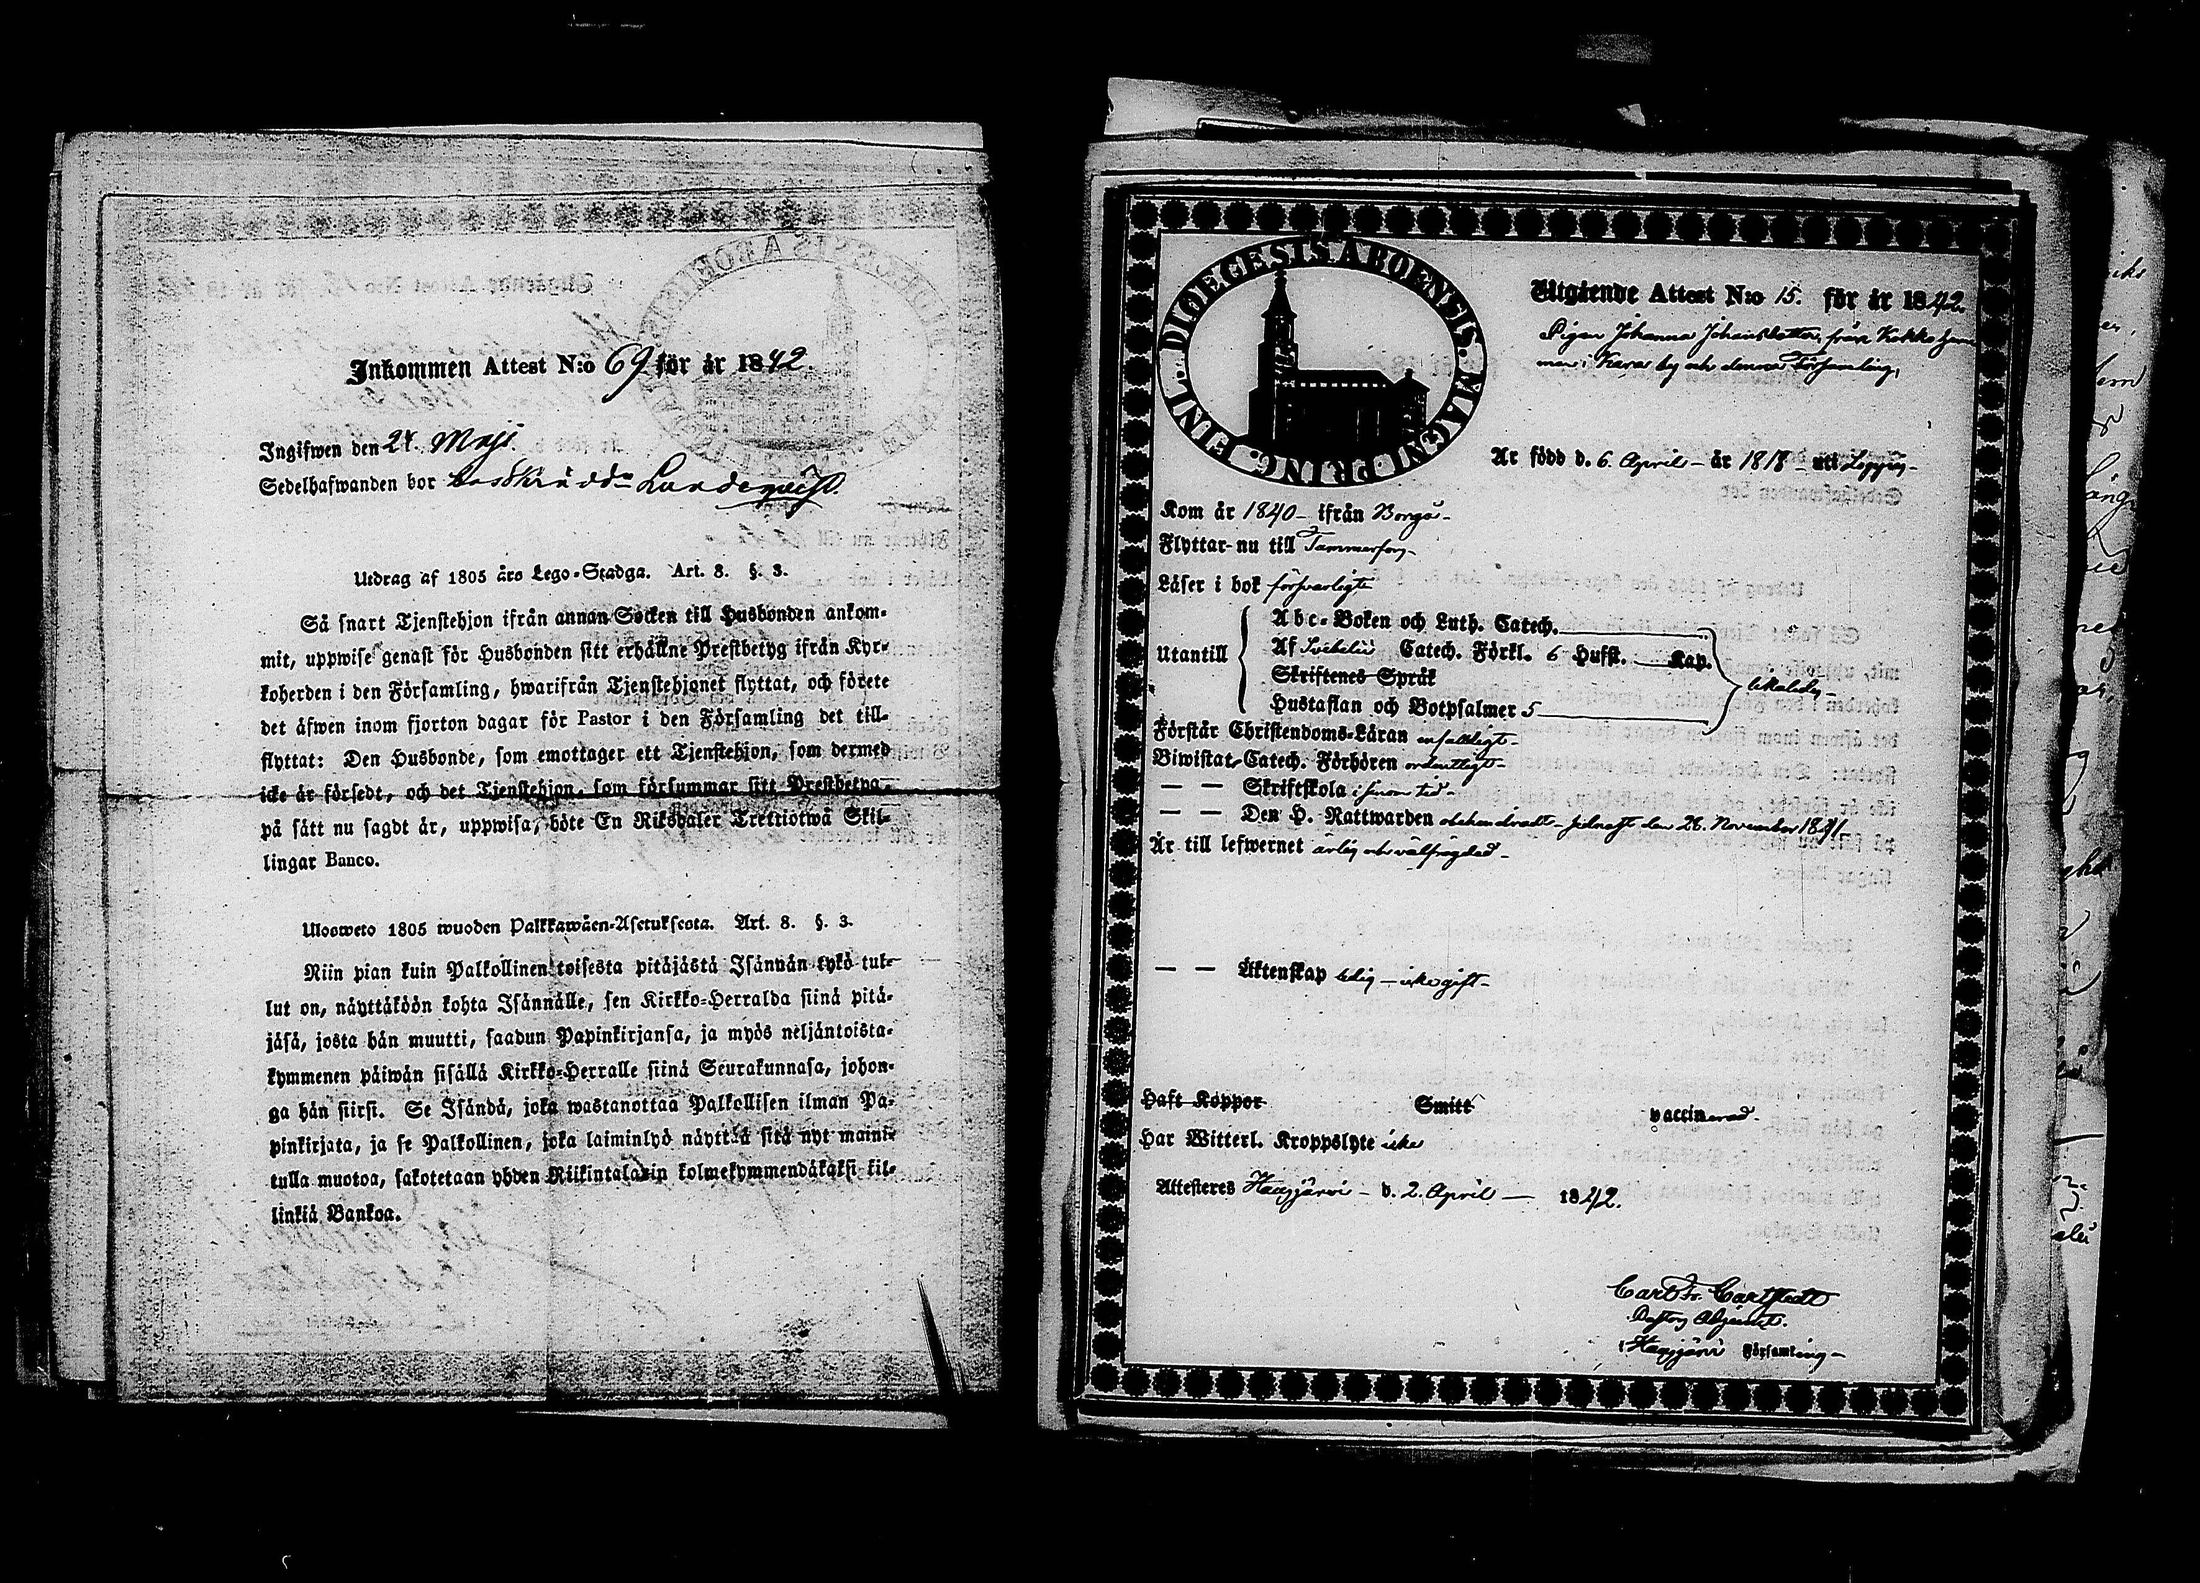 Inkommen Attest N:o 69 för år 1842.
Ingifwen den 24. Maji.
Sedelhafwanden bor hos Skrädd. Landeqvist.
Utdrag af 1805 års Lego-Stadga. Art. 8. §. 3.
Så snart Tjenstehjon ifrån annan Socken till Husbonden ankom-
mit, uppwise genast för Husbonden sitt erhållne Prestbetyg ifrån Kyr-
koherden i den Församling, hwarifrån Tjenstehjonet flyttat, och förete
det äfwen inom fjorton dagar för Pastor i den Församling det till-
flyttat: Den Husbonde, som emottager ett Tjenstehjon, som dermed
icke är försedt, och det Tjenstehjon, som försummar sitt Prestbetyg
på sätt nu sagdt är, uppwisa, böte En Riksdaler Trettiotwå Skil-
lingar Banco.
Ulosweto 1805 wuoden Palkkawäen-Asetuksesta. Art. 8. §. 3.
Niin pian kuin Palkollinen toisesta pitäjästä Isännän tykö tul-
lut on, näyttäköön kohta Isännälle, sen Kirkko-Herralda siinä pitä-
jäsä, josta hän muutti, saadun Papinkirjansa, ja myös neljäntoista-
kymmenen päiwän sisällä Kirkko-Herralle siinä Seurakunnasa, johon-
ga hän siirsi. Se Isändä, joka wastanottaa Palkollisen ilman Pa-
pinkirjata, ja se Palkollinen, joka laiminlyö näyttää sitä nyt maini-
tulla muotoa, sakotetaan yhden Riikintalarin kolmekymmendäkaksi kil-
linkiä Bankoa.
DIOECESIS ABOENSIS. MAGNI PRING. FINL.
Utgående Attest N:o 15. för år 1842.
Pigan Johanna Johansdotter, från Kokko hem
man i Kara by och denna Församling,
Är född d. 6. April - år 1818 - uti Loppis -
Kom år 1840 - ifrån Borgå -
Flyttar nu till Tammerfors -
Läser i bok försvarligt
Utantill
Abc-Boken och Luth. Catech.
Af Svebelii Catech. Förkl. 6 Hufst. Kap.
Skriftenes Språk
Hustaflan och Botpsalmer 5
Förstår Christendoms-Läran enfaldigt -
Biwistat Catech. Förhören ordentligt -
— — Skriftskola i sinom tid -
— — Den H. Nattwarden obehindradt - sednast den 28. November 1841.
Är till lefwernet ärlig och välfrägdad -
— — Äktenskap ledig - icke gift -
Haft Koppor Smitt vaccinerad -
Har Witterl. Kroppslyte icke
Attesteras Hausjärvi - d. 2. April - 1842.
Carl Fr. Carlstedt
Pastors Adjunct.
i Hausjärvi Församling -